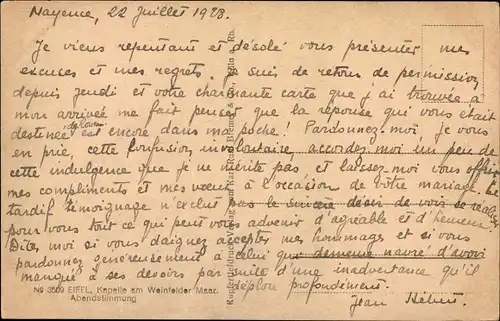 Mayence, 22 Juillet 1928.
Je viens repentant et désolé vous présenter mes
excuses et mes regrets. Je suis de retour de permission
depuis jeudi et votre charmante carte que j'ai trouvée à
mon arrivée me fait penser que la réponse qui vous était
destinée est encore dans ma poche! Pardonnez-moi, je vous
en prie, cette confusion involontaire, accordez moi un peu de
cette indulgence que je ne mérite pas et laissez moi vous offrir
mes compliments et mes vœux à l'occasion de votre mariage. Ce
tardif témoignage n'exclut pas le sincère désir de voir se
pour vous tout ce qui peut vous advenir d'agréable et d'heureux.
Dites moi si vous daignez accepter mes hommages et si vous
pardonnez généreusement à celui qui demeure navré d'avoir
manqué à ses devoirs par suite d'une inadvertance qu'il
déplore profondément.
Jean
No 3569 EIFEL, Kapelle am Weinfelder Maar.
Abendstimmung